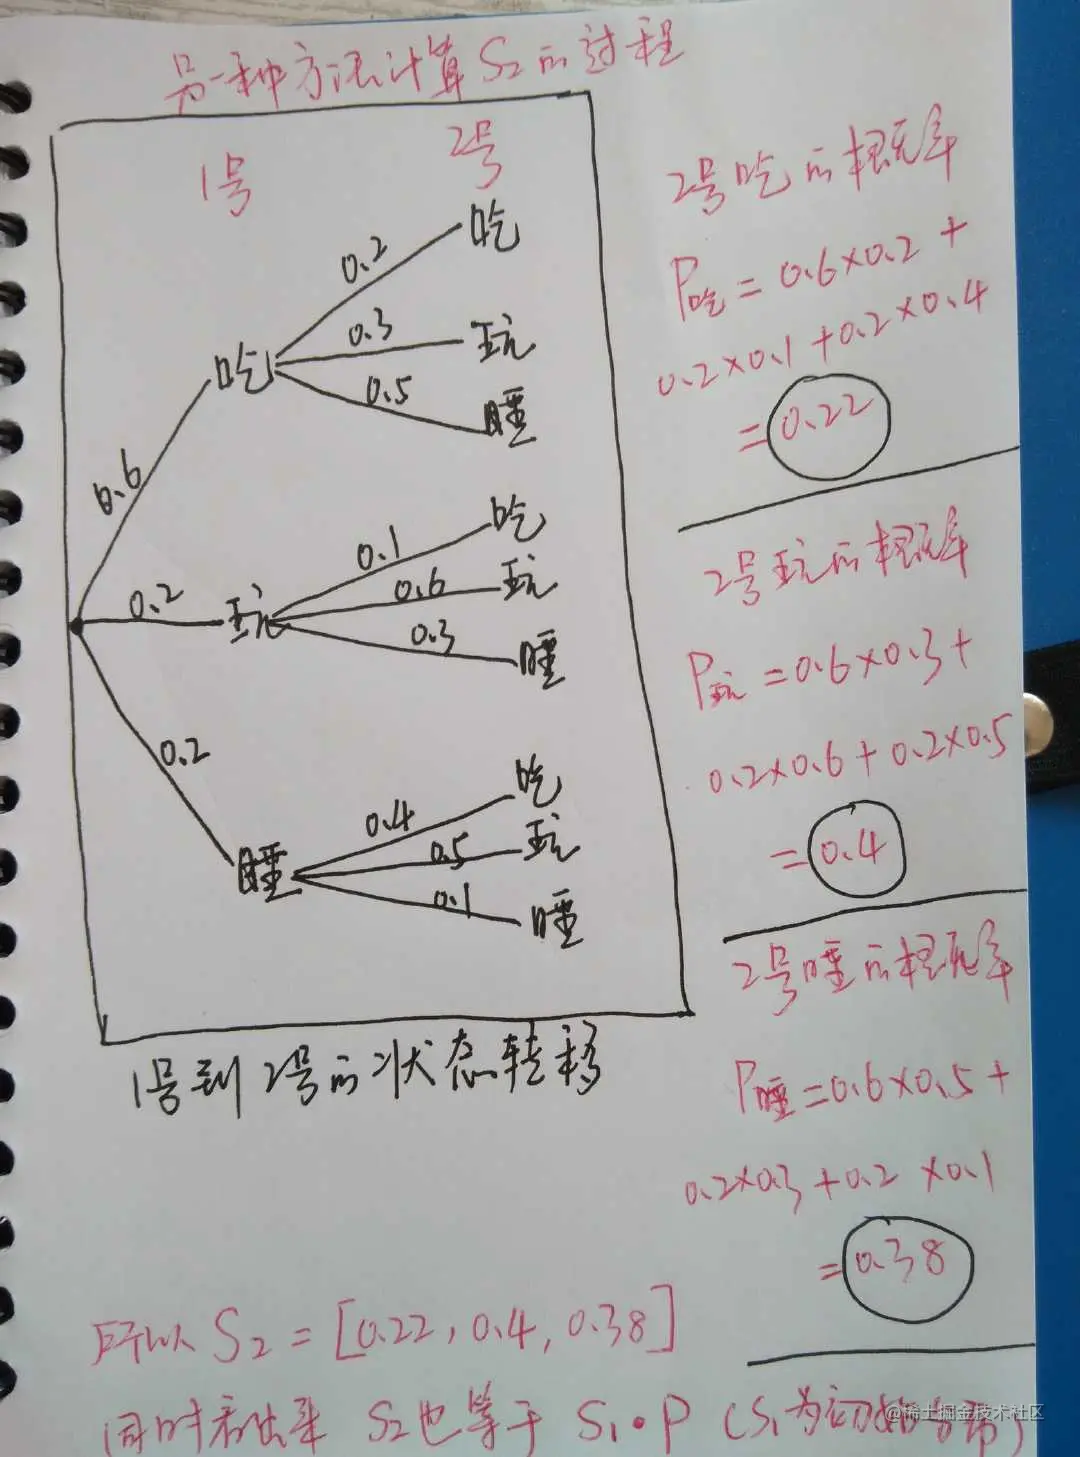 另一种方法计算S2的过程
1号
2号
0.6
吃
0.2
吃
0.3
玩
0.5
睡
0.2
玩
0.1
吃
0.6
玩
0.3
睡
0.2
睡
0.4
吃
0.5
玩
0.1
睡
1号到2号的状态转移
2号吃的概率
P吃=0.6×0.2+
0.2×0.1+0.2×0.4
=0.22
2号玩的概率
P玩=0.6×0.3+
0.2×0.6+0.2×0.5
=0.4
2号睡的概率
P睡=0.6×0.5+
0.2×0.3+0.2×0.1
=0.38
所以S2=[0.22,0.4,0.38]
同时看出来 S2也等于 S1·P (S1为初始分布)
@稀土掘金技术社区